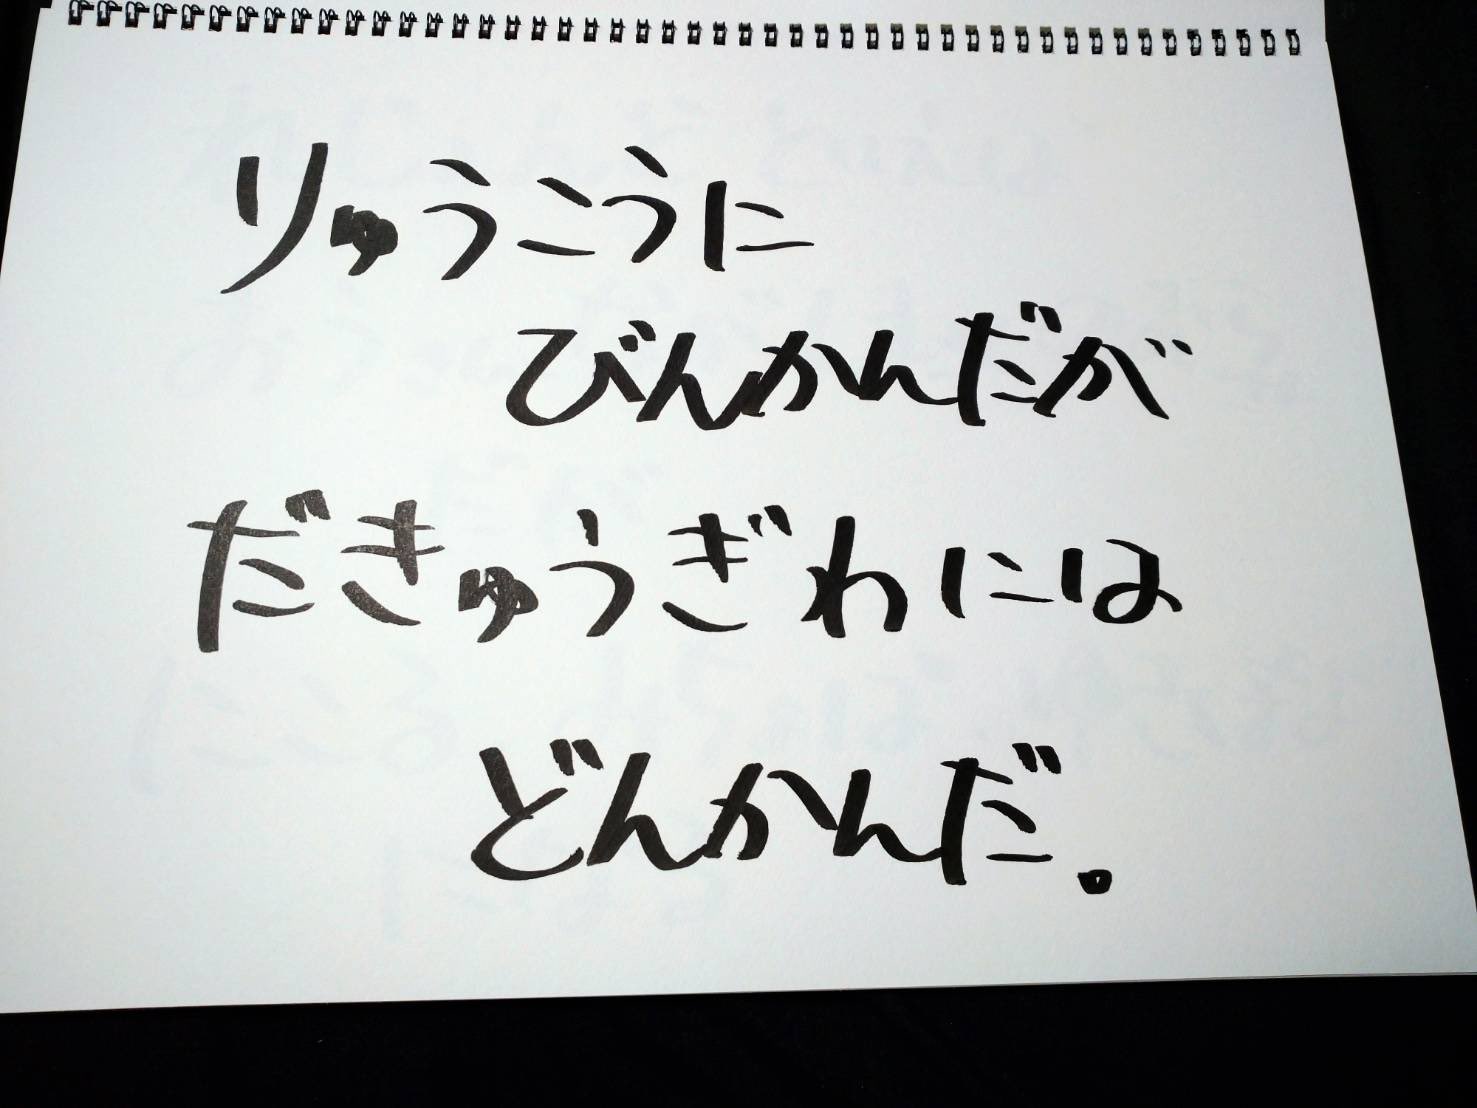 りゅうこうに
びんかんだが
だきゅうぎわには
どんかんだ。